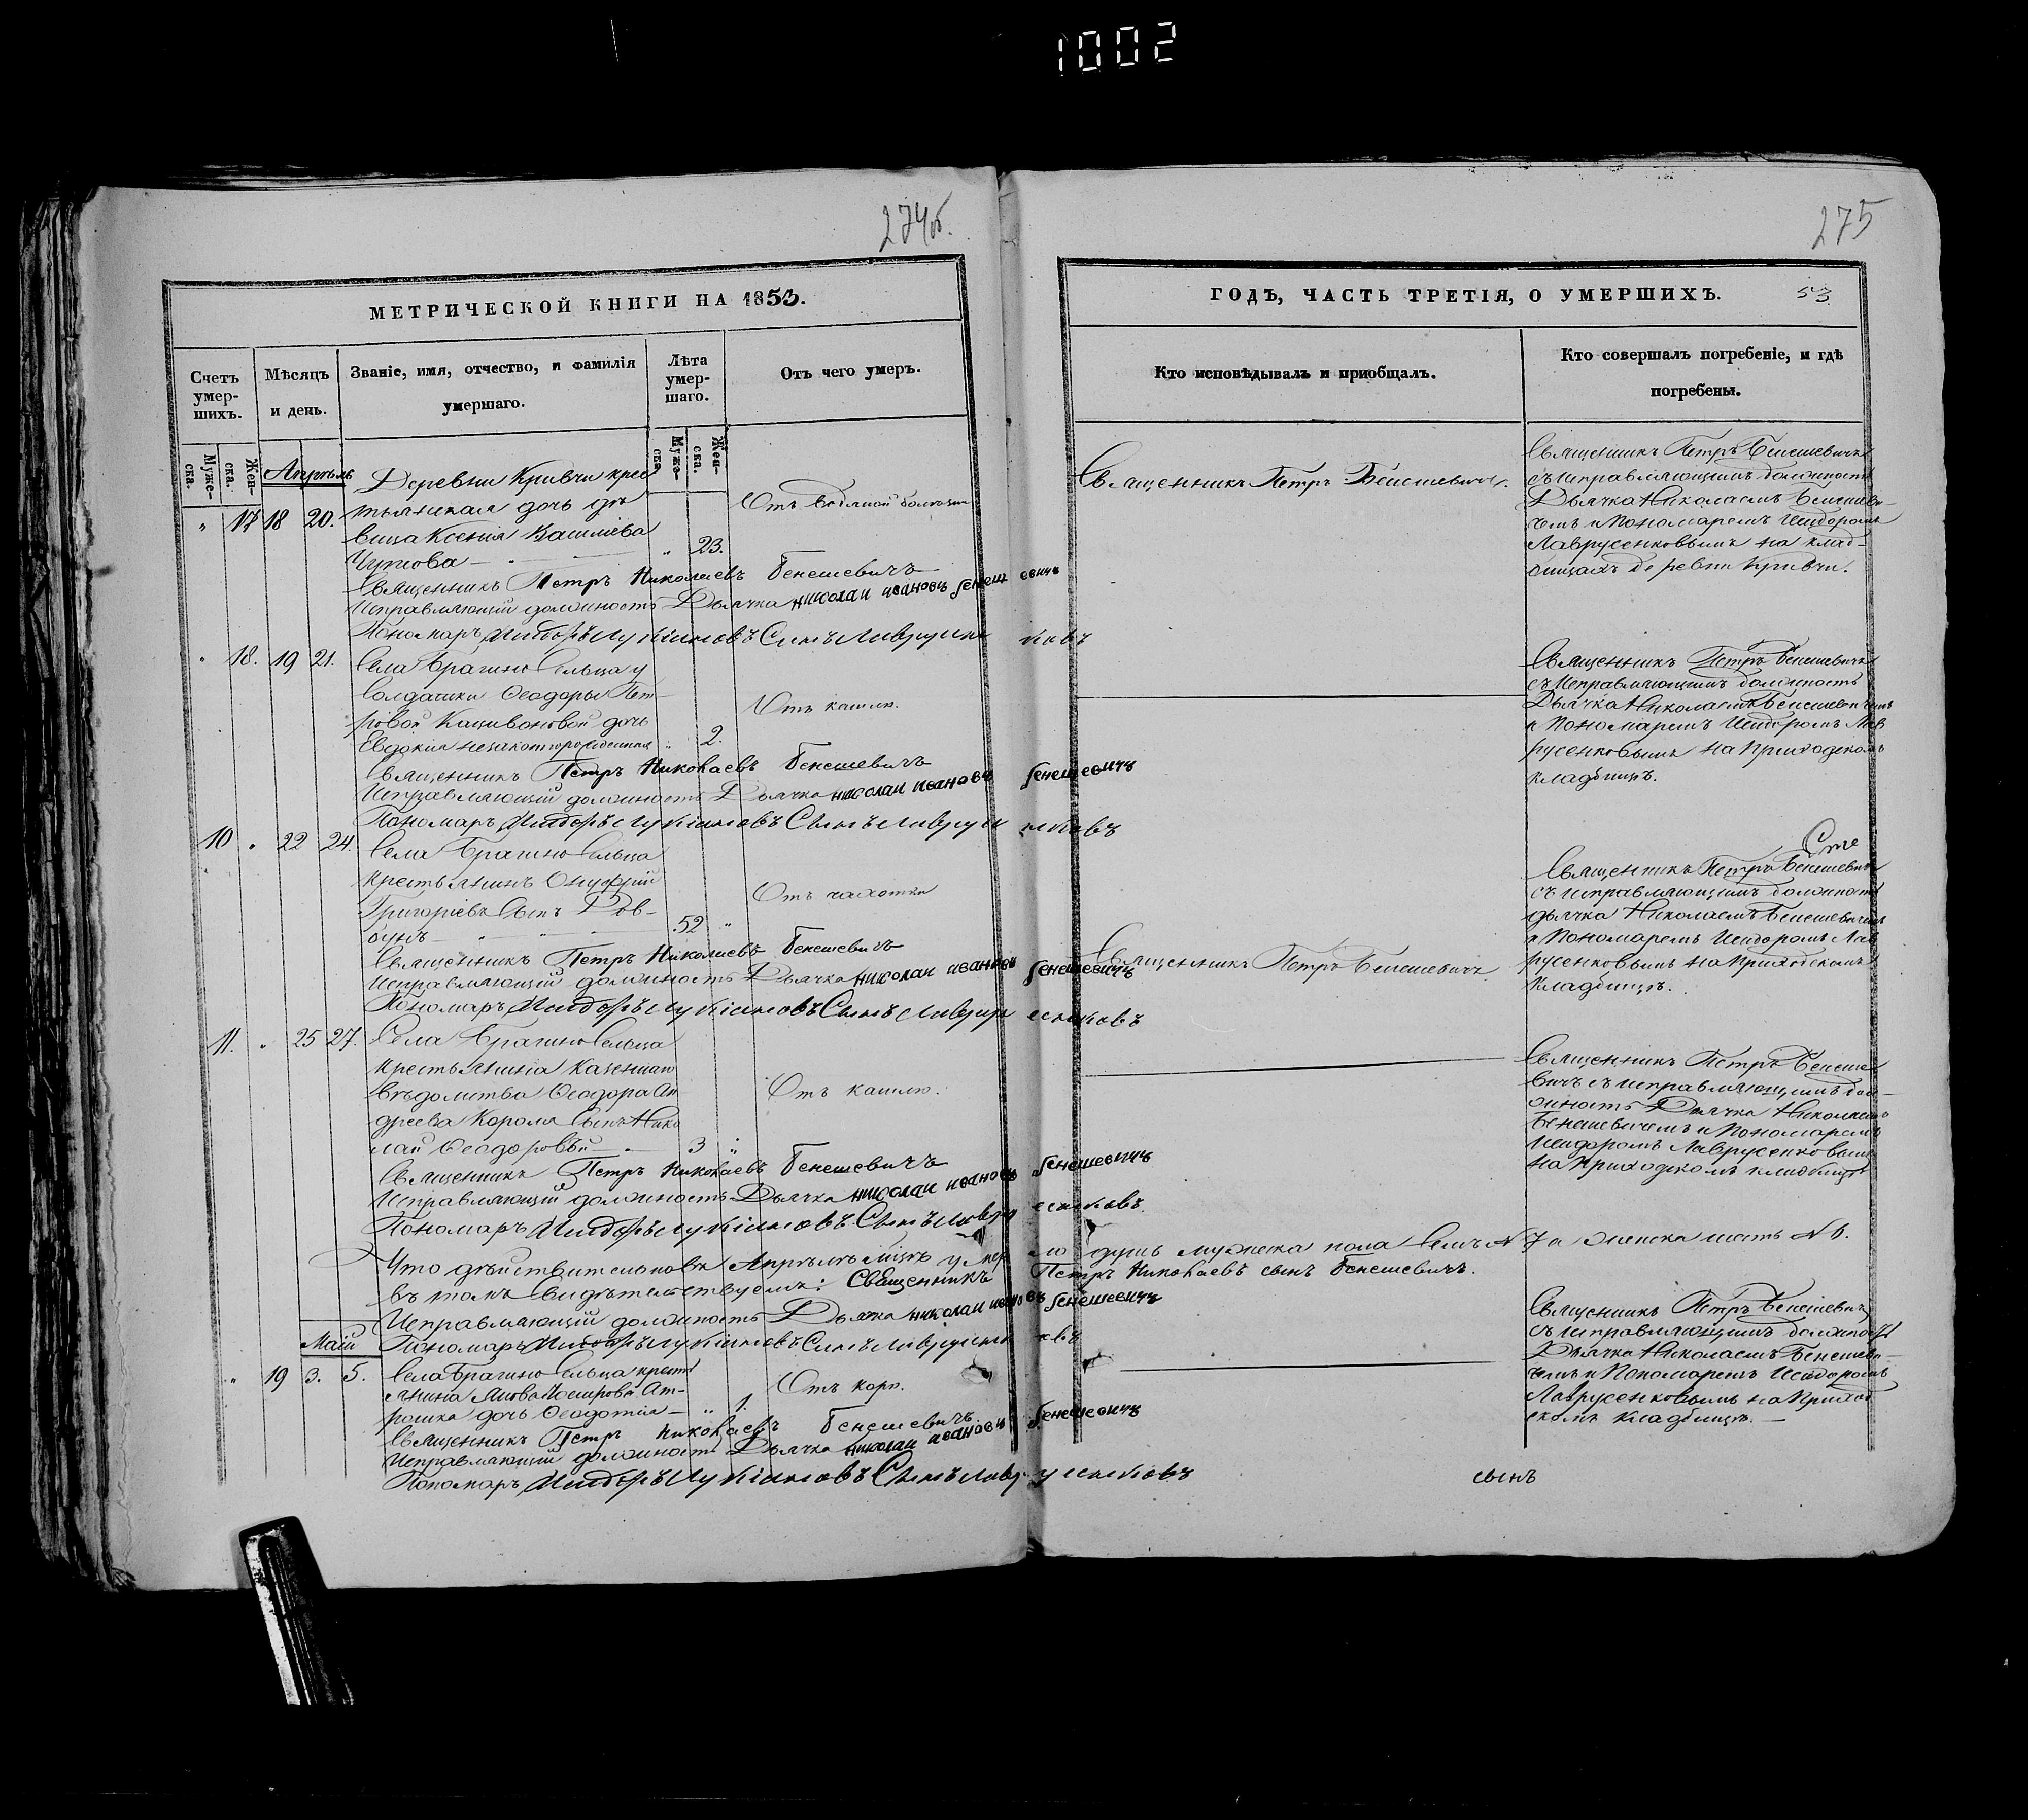 1002
274об.
МЕТРИЧЕСКОЙ КНИГИ НА 1853.
Счетъ умер-шихъ.
Мѣсяцъ и день.
Званіе, имя, отчество, и фамилія умершаго.
Лѣта умер-шаго.
Отъ чего умеръ.
Муже-ска.
Жен-ска.
Муже-ска.
Жен-ска.
Апрѣль
Деревни Кривчи крес
" 17 18 20. тьянская дочь дѣ
Отъ водяной болѣзни
вица Ксенія Василіева
" 23.
Священникъ Петръ Николаевъ Бенешевичъ
Исправляющій должность Дьячка николаи ивановъ бенешевичъ
Пономарь Исидоръ Лукіановъ Сынъ Лаврусенковъ
" 18. 19 21. Села Брагино Сельца у
Солдатки Ѳеодоры Пет-
Отъ кашлю.
ровой дочь
Евдокія незаконнорожденная " 2.
Священникъ Петръ Николаевъ Бенешевичъ
Исправляющій должность Дьячка николаи ивановъ бенешевичъ
Пономарь Исидоръ Лукіановъ Сынъ Лаврусенковъ
10 " 22 24. Села Брагино Сельца
крестьянинъ Онуфрій
Отъ чахотки
Григоріевъ Сынъ Дов-
52 "
Священникъ Петръ Николаевъ Бенешевичъ
Исправляющій должность Дьячка николаи ивановъ бенешевичъ
Пономарь Исидоръ Лукіановъ Сынъ Лаврусенковъ
11. " 25 27. Села Брагино Сельца
крестьянина Казеннаго
вѣдомства Ѳеодора Ан
Отъ кашлю.
дреева Короля Сынъ Нико
лай Ѳеодоровъ 3 "
Священникъ Петръ Николаевъ Бенешевичъ
Исправляющій должность Дьячка николаи ивановъ бенешевичъ
Пономарь Исидоръ Лукіановъ Сынъ Лаврусенковъ
Что дѣйствительно въ Апрѣлѣ мцѣ умерло душъ мужеска пола а женска
въ томъ свидѣтельствуемъ: Священникъ Петръ Николаевъ сынъ Бенешевичъ.
Исправляющій должность Дьячка николаи ивановъ бенешевичъ
Май
Пономарь Исидоръ Лукіановъ Сынъ Лаврусенковъ
" 19 3. 5. Села Брагино Сельца кресть
янина
Отъ кори.
дочь Ѳеодотія " 1.
Священникъ Петръ Николаевъ Бенешевичъ
Исправляющій должность Дьячка николаи ивановъ бенешевичъ
Пономарь Исидоръ Лукіановъ Сынъ Лаврусенковъ
275
ГОДЪ, ЧАСТЬ ТРЕТІЯ, О УМЕРШИХЪ.
53
Кто исповѣдывалъ и пріобщалъ.
Кто совершалъ погребеніе, и гдѣ погребены.
Священникъ Петръ Бенешевичъ.
Священникъ Петръ Бенешевичъ
съ исправляющимъ должность
Дьячка Николаемъ Бенешеви-
чемъ и Пономаремъ Исидоромъ
Лаврусенковымъ на клад-
бищахъ деревни Кривчи.
Священникъ Петръ Бенешевичъ
съ Исправляющимъ должность
Дьячка Николаемъ Бенешевичемъ
и Пономаремъ Исидоромъ Лав
русенковымъ на Приходскомъ
кладбищѣ.
Священникъ Петръ Бенешевичъ
Священникъ Петръ Бенешевичъ
съ исправляющимъ должность
дьячка Николаемъ Бенешевичемъ
и Пономаремъ Исидоромъ Лав
русенковымъ на Приходскомъ
Кладбищѣ.
Священникъ Петръ Бенеше
вичъ съ исправляющимъ дол-
жность Дьячка Николаемъ
Бенешевичемъ и Пономаремъ
Исидоромъ Лаврусенковымъ
на Приходскомъ кладбищѣ
Священникъ Петръ Бенешевичъ
съ исправляющимъ должность
Дьячка Николаемъ Бенешеви-
чемъ и Пономаремъ Исидоромъ
Лаврусенковымъ на Приход
скомъ кладбищѣ.
сынъ